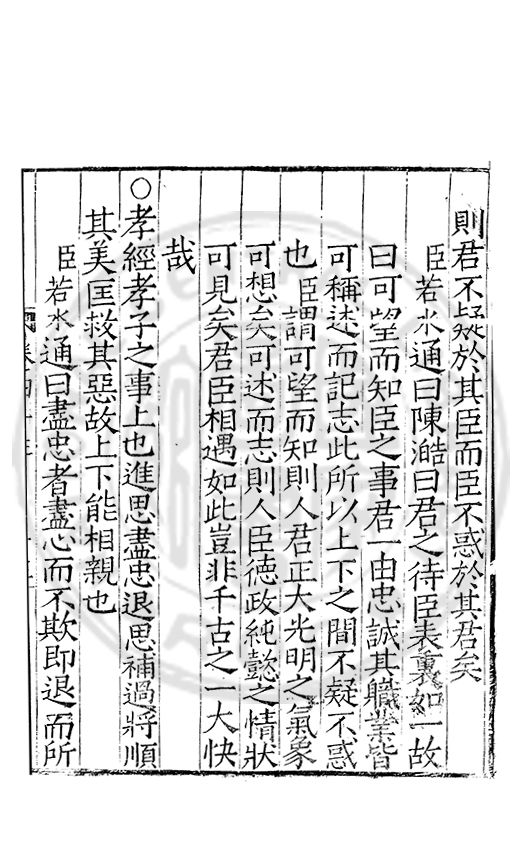 則君不疑於其臣而臣不惑於其君矣
臣若水通曰陳澔曰君之待臣表裏如一故
曰可望而知臣之事君一由忠誠其職業皆
可稱述而記志此所以上下之間不疑不惑
也臣謂可望而知則人君正大光明之氣象
可想矣可述而志則人臣德政純懿之情狀
可見矣君臣相遇如此豈非千古之一大快
哉
○孝經孝子之事上也進思盡忠退思補過將順
其美匡救其惡故上下能相親也
臣若水通曰盡忠者盡心而不欺即退而所